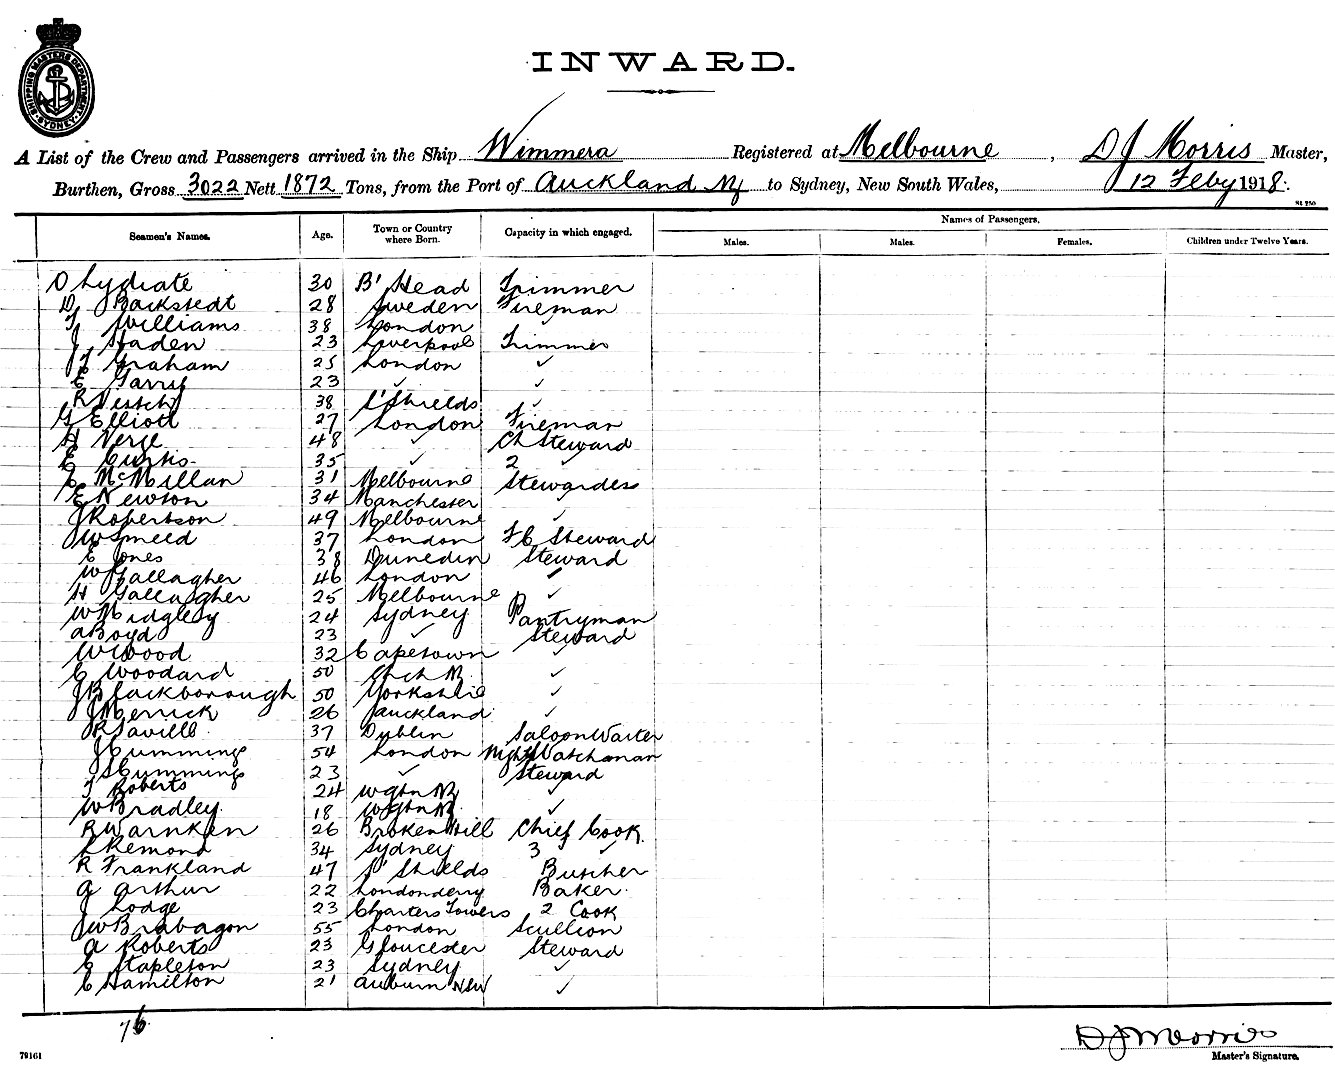 SHIPPING MASTERS DEPARTMENT SYDNEY
INWARD.
A List of the Crew and Passengers arrived in the Ship Wimmera Registered at Melbourne, D J Morris Master,
Burthen, Gross 3022 Nett 1872 Tons, from the Port of Auckland NZ to Sydney, New South Wales, 12 Feby 1918.
Names of Passengers.
Seamen's Names. Age. Town or Country where Born. Capacity in which engaged. Males. Males. Females. Children under Twelve Years.
O Lydiate 30 B'Head Trimmer
D Backstedt 28 Sweden Fireman
T Williams 38 London
J Staden 23 Liverpool Trimmer
J T Graham 25 London ✓
E Garry 23 ✓ ✓
R 38 S'Shields ✓
G Elliott 27 London Fireman
H Verge 48 ✓ Ch Steward
E Curtis 35 ✓ 2 ✓
McMillan 31 Melbourne Stewardess
E Newton 34 Manchester ✓
J Robertson 49 Melbourne ✓
J W Smeed 37 London F C Steward
E Jones 38 Dunedin Steward
W Gallagher 46 London ✓
H Gallagher 25 Melbourne ✓
W Midgley 24 Sydney Pantryman
A Boyd 23 ✓ Steward
W Wood 32 Capetown ✓
C Woodard 50 Chch NZ ✓
J Blackborough 50 Yorkshire ✓
J Merrick 26 Auckland ✓
R Saville 37 Dublin Saloon Waiter
J Cummings 54 London Night Watchman
S Cummings 23 ✓ Steward
T Roberts 24 Wgtn NZ ✓
W Bradley 18 Wgtn NZ ✓
R Warnken 26 Broken Hill Chief Cook
L Remond 34 Sydney 3 ✓
R Frankland 47 S'Shields Butcher
G Arthur 22 Londonderry Baker
J Lodge 23 Charters Towers 2 Cook
J W Brabagon 55 London Scullion
A Roberts 23 Gloucester Steward
E Stapleton 23 Sydney ✓
C Hamilton 21 Auburn NSW ✓
76
D J Morris
79161 Master's Signature.